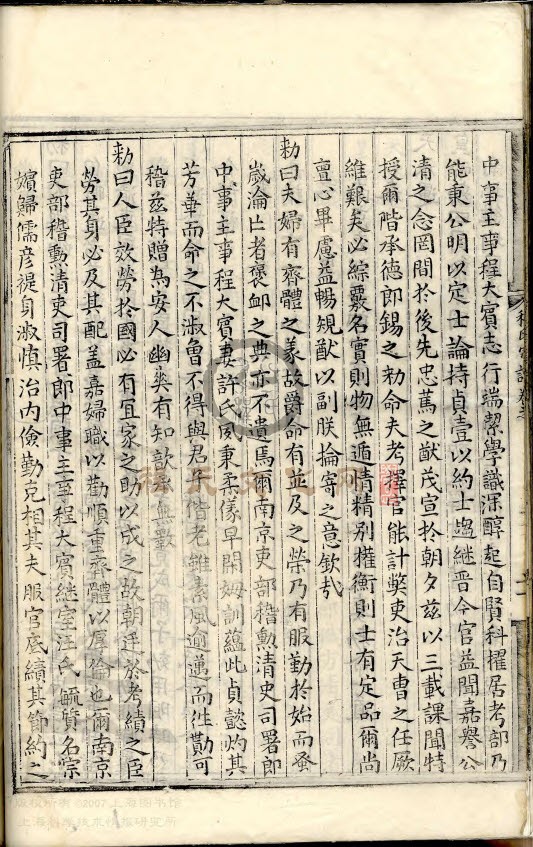 中事主事程大賓志行端潔學識深醇起自賢科擢居考部乃
能秉公明以定士論持貞壹以約士趨繼晉今官益聞嘉譽公
清之念罔間於後先忠藎之猷茂宣於朝夕茲以三載課聞特
授爾階承德郎錫之勑命夫考擇官能計獎吏治天曹之任厥
維艱矣必綜覈名實則物無遁情精別權衡則士有定品爾尚
亶心畢慮益暢䂓猷以副朕掄寄之意欽哉
勑曰夫婦有齊體之義故爵命有並及之榮乃有服勤於始而蚤
歲淪亡者褒卹之典亦不遺焉爾南京吏部稽勲清吏司署郎
中事主事程大賓妻許氏夙秉柔儀早閑姆訓蘊此貞懿灼其
芳華而命之不淑曾不得與君子偕老雖素風逾邁而徃勩可
稽茲特贈為安人幽爽有知歆承無斁
勑曰人臣效勞於國必有冝家之助以成之故朝廷於考績之臣
勞其身必及其配盖嘉婦職以勸順重齊體以厚倫也爾南京
吏部稽勲清吏司署郎中事主事程大賓継室汪氏毓質名宗
嬪歸儒彦禔身淑慎治内儉勤克相其夫服官底績其節約之
版权所有 ©2007 上海图书馆
上海科学技术情报研究所